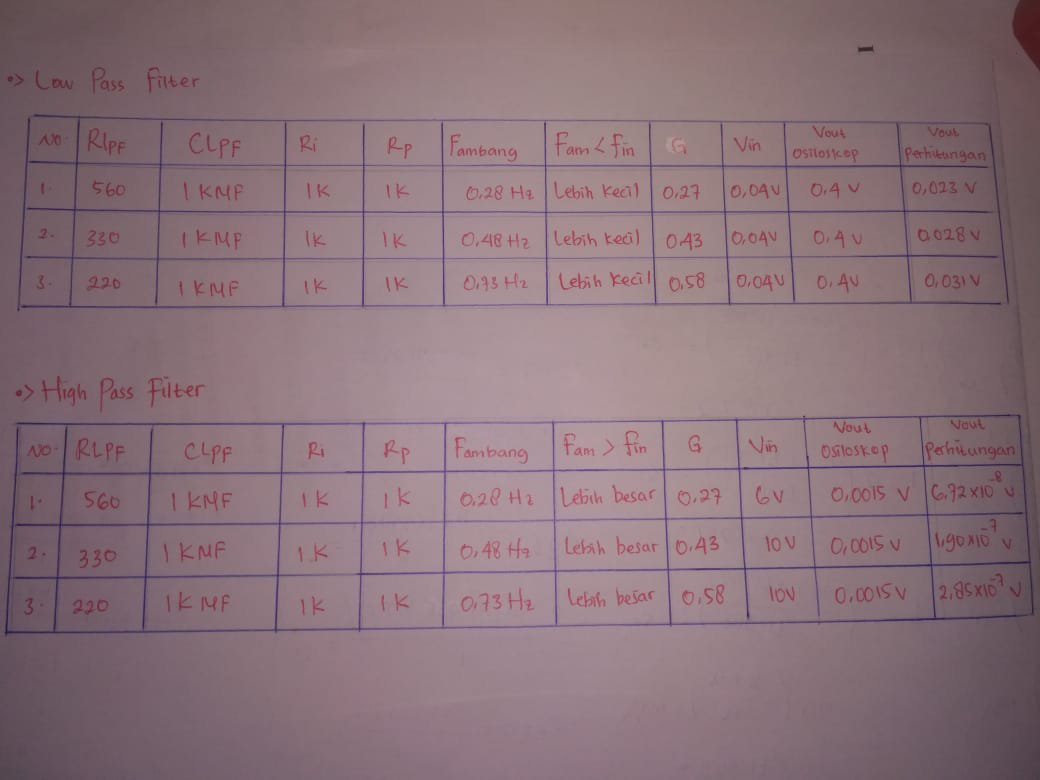 •> Low Pass Filter
No. RLPF CLPF Ri Rp Fambang Fam < fin G Vin Vout Osiloskop Vout Perhitungan
1. 560 1 KMF 1K 1K 0,28 Hz Lebih Kecil 0,27 0,04V 0,4 V 0,023 V
2. 330 1 KMF 1K 1K 0,48 Hz Lebih Kecil 0,43 0,04V 0,4 V 0,028 V
3. 220 1 KMF 1K 1K 0,73 Hz Lebih Kecil 0,58 0,04V 0,4V 0,031 V
•> High Pass Filter
NO. RLPF CLPF Ri Rp Fambang Fam > fin G Vin Vout Osiloskop Vout Perhitungan
1. 560 1 KMF 1 K 1 K 0,28 Hz Lebih besar 0,27 6V 0,0015 V 6,72x10⁻⁸ V
2. 330 1 KMF 1 K 1 K 0,48 Hz Lebih besar 0,43 10 V 0,0015 V 1,90x10⁻⁷ V
3. 220 1 K MF 1 K 1 K 0,73 Hz Lebih besar 0,58 10V 0,0015 V 2,85x10⁻⁷ V